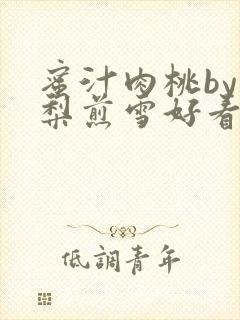 蜜汁肉桃by
梨煎雪好看
低調青年